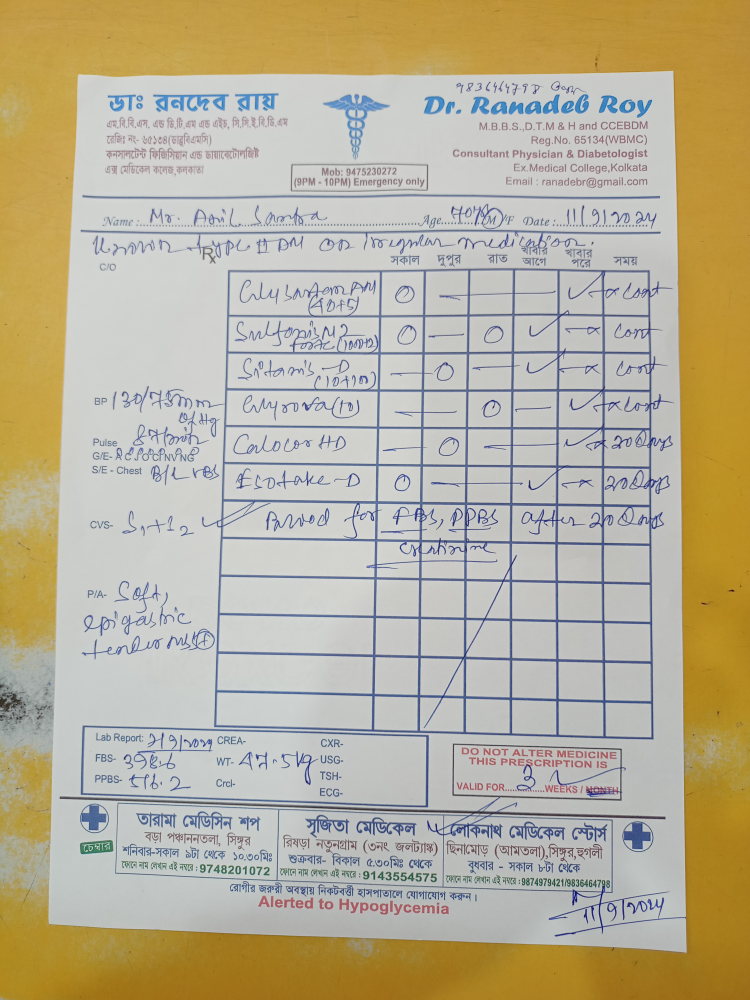 ডাঃ রনদেব রায়
এম.বি.বি.এস, এন্ড ডি.টি.এম এন্ড এইচ, সি.সি.ই.বি.ডি.এম
রেজিঃ নং- ৬৫১৩৪(ডাব্লুবিএমসি)
কনসালটেন্ট ফিজিসিয়ান এন্ড ডায়াবেটোলজিষ্ট
এক্স মেডিকেল কলেজ,কলকাতা
Mob: 9475230272
(9PM - 10PM) Emergency only
Dr. Ranadeb Roy
M.B.B.S.,D.T.M & H and CCEBDM
Reg.No. 65134(WBMC)
Consultant Physician & Diabetologist
Ex.Medical College,Kolkata
Email : ranadebr@gmail.com
Name : Mr. Anil Santra Age 70 M/F Date : 11/9/2024
Known type II DM on irregular medication.
Rx
C/O
সকাল দুপুর রাত খাবার আগে খাবার পরে সময়
(40+5) O — ✓ cont
(1000+2) O — O ✓ — cont
— O — ✓ — cont
(10) — — O — ✓ cont
— O — — ✓ 20 Days
O — — ✓ — 20 Days
BP 130/75 mm of Hg
Pulse 87/min
G/E-
S/E - Chest B/L VBS
CVS- S1+S2
for FBS, PPBS after 20 Days
creatinine
P/A- Soft,
epigastric
tenderness +
Lab Report: 2/9/2024 CREA- CXR-
FBS- 398.6 WT- 47.5 kg USG-
PPBS- 516.2 Crcl- TSH-
ECG-
DO NOT ALTER MEDICINE
THIS PRESCRIPTION IS
VALID FOR 3 WEEKS / MONTH
চেম্বার
তারামা মেডিসিন শপ
বড়া পঞ্চাননতলা, সিঙ্গুর
শনিবার-সকাল ৯টা থেকে ১০.৩০মিঃ
ফোনে নাম লেখান এই নম্বরে : 9748201072
সৃজিতা মেডিকেল
রিষড়া নতুনগ্রাম (৩নং জলট্যাঙ্ক)
শুক্রবার- বিকাল ৫.৩০মিঃ থেকে
ফোনে নাম লেখান এই নম্বরে : 9143554575
লোকনাথ মেডিকেল স্টোর্স
ছিনামোড় (আমতলা),সিঙ্গুর,হুগলী
বুধবার - সকাল ৮টা থেকে
ফোনে নাম লেখান এই নম্বরে : 9874979421/9836464798
রোগীর জরুরী অবস্থায় নিকটবর্ত্তী হাসপাতালে যোগাযোগ করুন।
Alerted to Hypoglycemia
11/9/2024